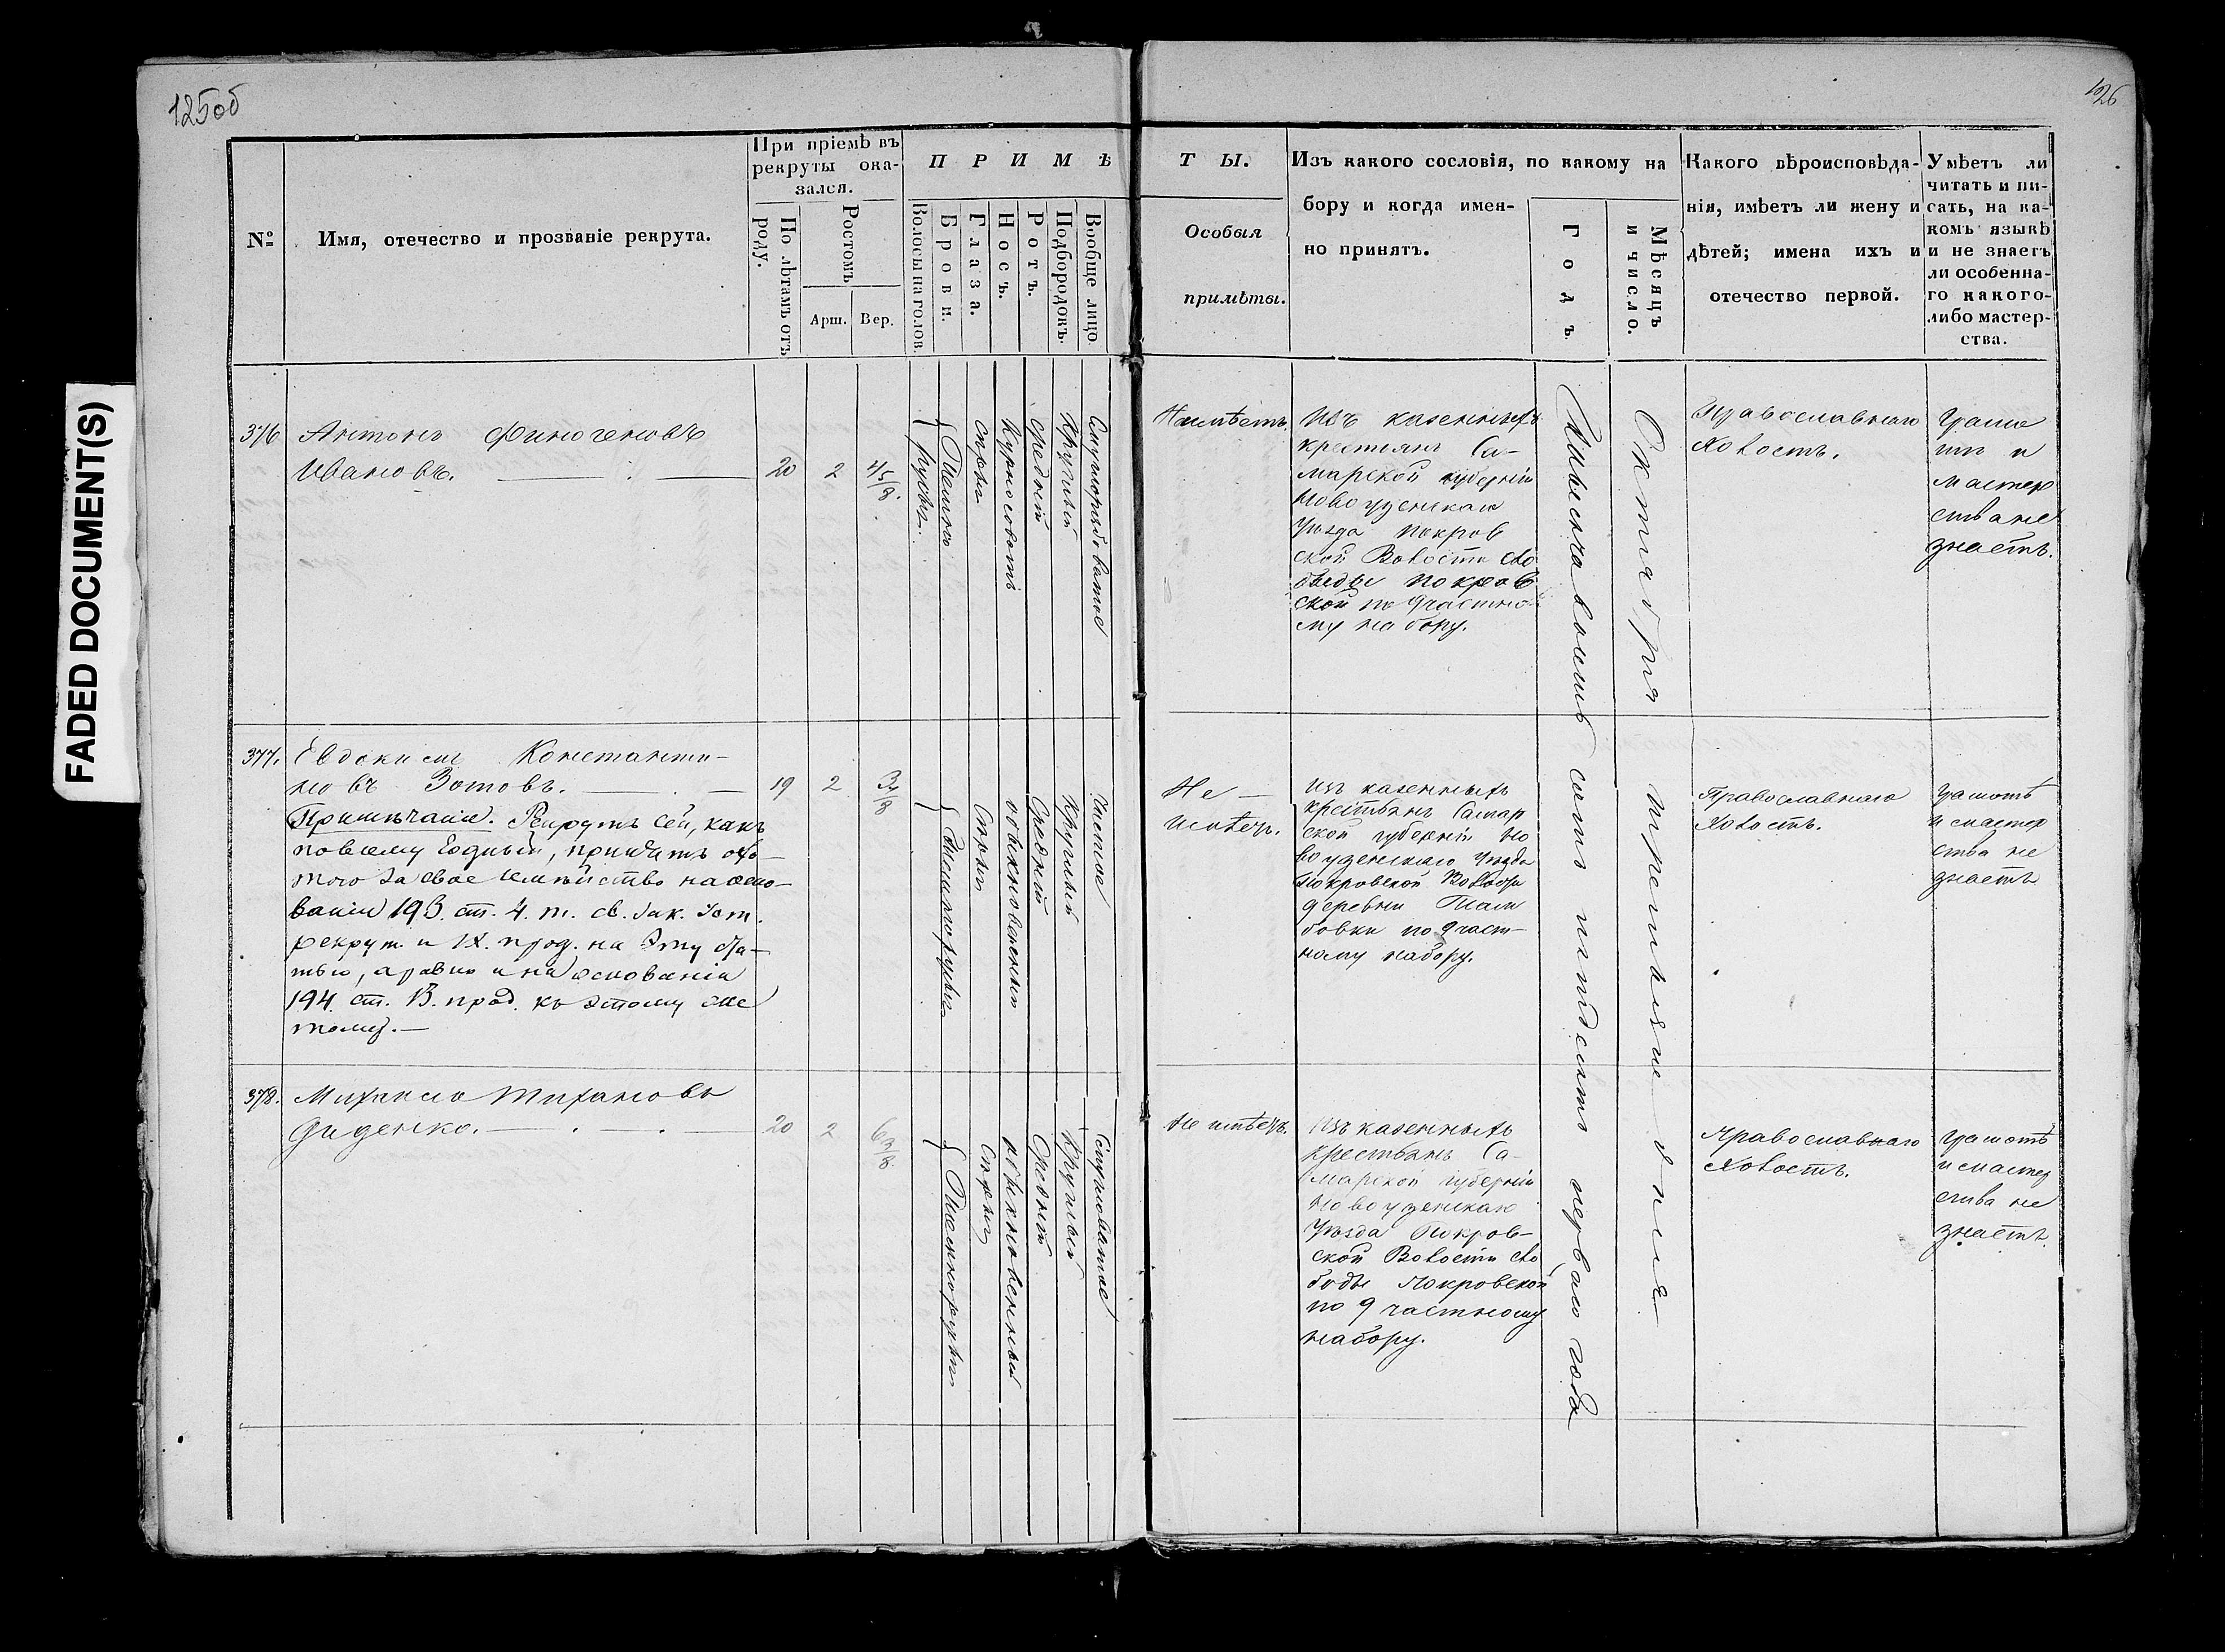 125об
126
FADED DOCUMENT(S)
№
Имя, отечество и прозваніе рекрута.
При пріемѣ въ
рекруты ока-
зался.
По лѣтамъ отъ
роду.
Ростомъ
Арш.
Вер.
ПРИМѢ
Волосы на голов.
Брови.
Глаза.
Носъ.
Ротъ.
Подбородокъ.
Вообще лицо.
ТЫ.
Особыя
примѣты.
Изъ какого сословія, по какому на
бору и когда имен-
но принятъ.
Годъ
Мѣсяцъ
и число.
Какого вѣроисповѣда-
нія, имѣетъ ли жену и
дѣтей; имена ихъ и
отечество первой.
Умѣетъ ли
читать и пи-
сать, на ка-
комъ языкѣ
и не знаетъ
ли особенна-
го какого-
либо мастер-
ства.
376
Антонъ Финогеновъ
Ивановъ.
20
2
4 5/8.
Темно
русые.
Сѣрые
Курносоватъ
Средній
Круглый
Смугловатое
Неимѣетъ.
Изъ казенныхъ
крестьянъ Са-
марской губерніи
Новоузенскаго
Уѣзда Покров
ской Волости сло
боды Покров
ской по 9 частно
му набору.
Православнаго
Холостъ.
Грамо
ты и
мастер
ства не
знаетъ.
377.
Евдокимъ Константи-
новъ Зотовъ.
19
2
3/8
Примѣчаніе. Рекрутъ сей, какъ
повсему Годный, принятъ охо-
тою за свое семѣйство на осно-
ваніи 193. ст. 4. т. св. зак. Уст.
рекрут. и IX. прод. на эту ста-
тью, а равно и на основаніи
194. ст. В. прод. къ этому же
тому.
Темнорусые
Сѣрые
обыкновенный
Средній
Круглый
Чистое
Не
имѣетъ.
Изъ казенныхъ
крестьянъ Самар
ской губерніи Но
воузенскаго Уѣзда
Покровской Волости
деревни Там
бовки по 9 част-
ному набору.
Православнаго
Холостъ.
Грамотѣ
и мастер
ства не
знаетъ
378.
Михаила Тихановъ
Диденко.
20
2
6 3/8.
Темнорусые
Сѣрые
обыкновенный
Средній
Круглый
Смугловатое
Не имѣетъ.
Изъ казенныхъ
крестьянъ Са-
марской губерніи
Новоузенскаго
Уѣзда Покров-
ской Волости сло
боды Покровской
по 9 частному
набору.
Православнаго
Холостъ.
Грамотѣ
и мастер
ства не
знаетъ.
Тысяча восемь сотъ пятдесятъ перваго года
Октября третьяго дня